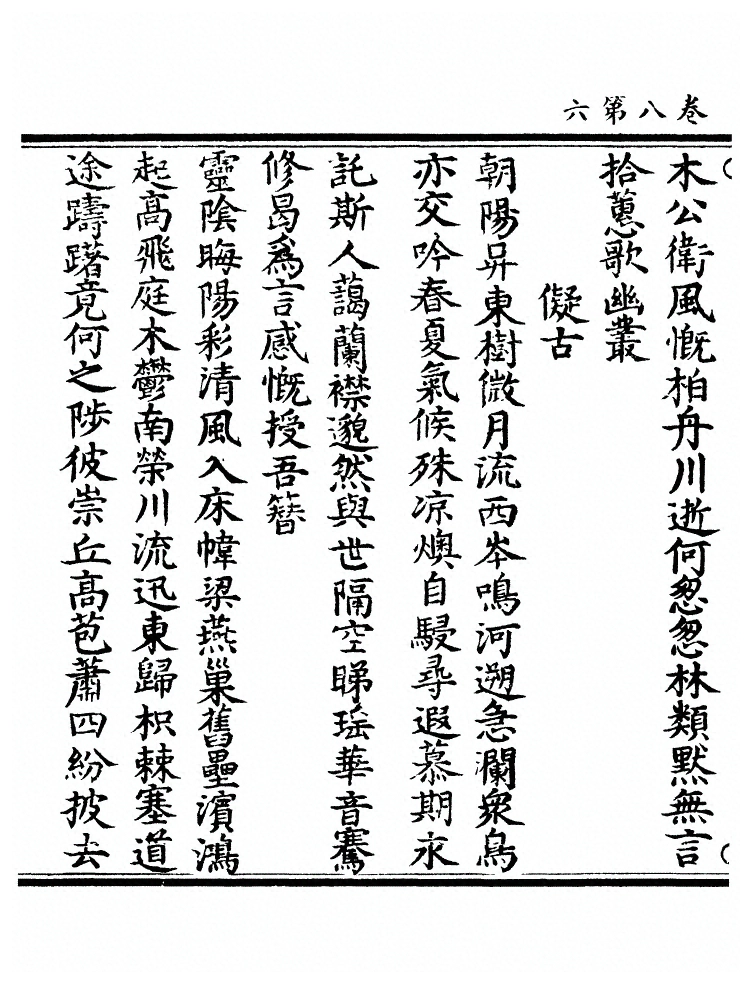 卷八第六
木公衛風慨柏舟川逝何怱怱林類默無言
拾蕙歌幽叢
儗古
朝陽昇東樹微月流西岑鳴河遡急瀾衆鳥
亦交吟春夏氣候殊凉燠自駸尋遐慕期永
託斯人藹蘭襟邈然與世隔空睇瑶華音騫
修曷爲言感慨授吾簪
靈陰晦陽彩清風入床幃梁燕巢舊壘濱鴻
起高飛庭木鬱南榮川流迅東歸枳棘塞道
途躊躇竟何之陟彼崇丘高苞蕭四紛披去